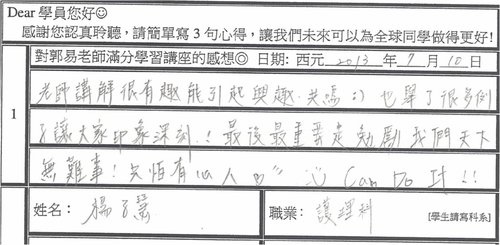 Dear 學員您好☺
感謝您認真聆聽，請簡單寫3句心得，讓我們未來可以為全球同學做得更好!
對郭易老師滿分學習講座的感想◎ 日期: 西元 2013 年 7 月 10 日
1
老師講解很有趣能引起興趣.共鳴:) 也舉了很多例
子讓大家印象深刻.! 最後最重要是勉勵我們天下
無難事! 只怕有心人♡" Can Do It!!
姓名： 楊子
職業： 護理科 [學生請寫科系]